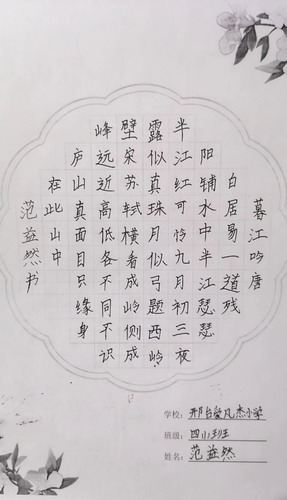 暮江吟唐
白居易一道残
阳铺水中半江瑟瑟
半江红可怜九月初三夜
露似真珠月似弓题西岭
壁宋苏轼横看成岭侧成
峰远近高低各不同不识
庐山真面目只缘身
在此山中
范益然书
学校：邢台凡杰小学
班级：四(1)班
姓名：范益然